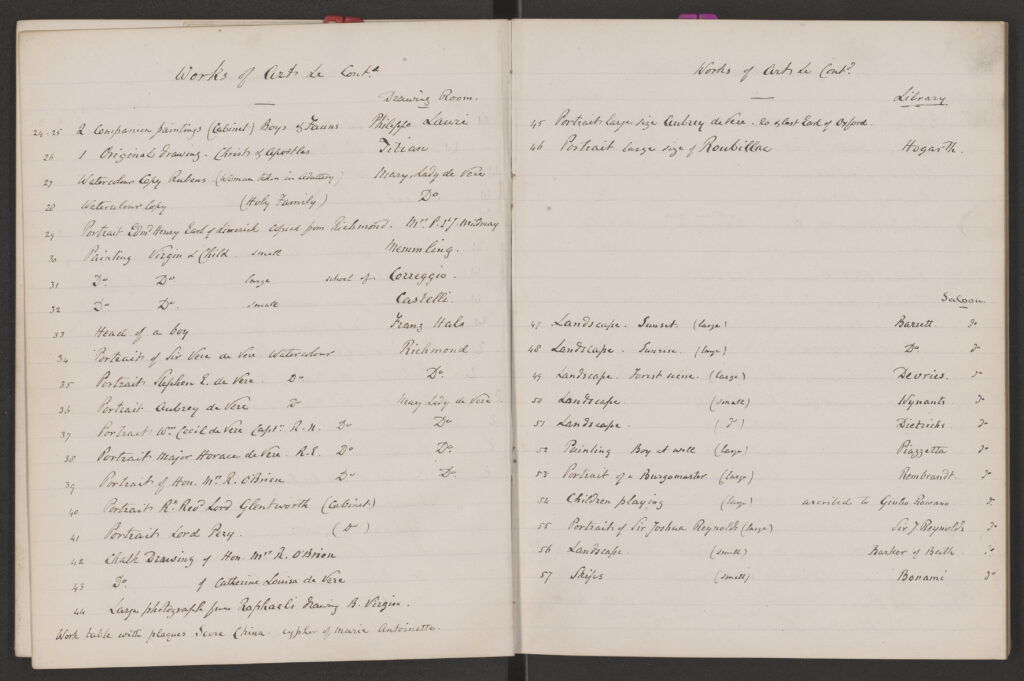 Works of Arts &c Contd
Drawing Room.
24-25 2 Companion paintings (Cabinet) Boys & Fauns Philippo Lauri
26 1 Original Drawing. Christ & Apostles Titian
27 Watercolour Copy Rubens (Woman taken in Adultery) Mary, Lady de Vere
28 Watercolour Copy (Holy Family) Do
29 Portrait Edmd Henry Earl of Limerick copied from Richmond. Mrs P. St J. Mildmay
30 Painting Virgin & Child. small Memmling.
31 Do. Do. large school of Correggio.
32 Do. Do. small Castelli.
33 Head of a boy Franz Hals
34 Portrait of Sir Vere de Vere. Watercolour Richmond
35 Portrait Stephen E. de Vere. Do Do.
36 Portrait Aubrey de Vere Do Mary Lady de Vere
37 Portrait Wm Cecil de Vere Captn R.N. Do Do
38 Portrait Major Horace de Vere. R.E. Do Do.
39 Portrait of Hon. Mrs R. O'Brien Do Do.
40 Portrait Rt Revd Lord Glentworth (Cabinet)
41 Portrait Lord Pery. (Do)
42 Chalk Drawing of Hon. Mrs R. O'Brien
43 Do. of Catherine Louisa de Vere
44 Large photograph from Raphaels drawing B. Virgin.
Work table with plaques Sevre China cypher of Marie Antoinette.
Works of Arts &c Contd.
Library
45 Portrait large size Aubrey de Vere. 20 & last Earl of Oxford.
46 Portrait large size of Roubillac Hogarth.
Saloon.
47 Landscape. Sunset. (large) Barrett. Do
48 Landscape. Sunrise. (large) Do. Do
49 Landscape. Forest scene. (large) Devries. Do
50 Landscape. (small) Wynants Do
51 Landscape. (Do) Dietrichs Do
52 Painting Boy at well (large) Piazzetta Do
53 Portrait of a Burgomaster (large) Rembrandt Do
54 Children playing (large) ascribed to Giulio Romano. Do
55 Portrait of Sir Joshua Reynolds (large) Sir J Reynolds Do
56 Landscape. (small) Barker of Bath Do
57 Ships (small) Bonami Do